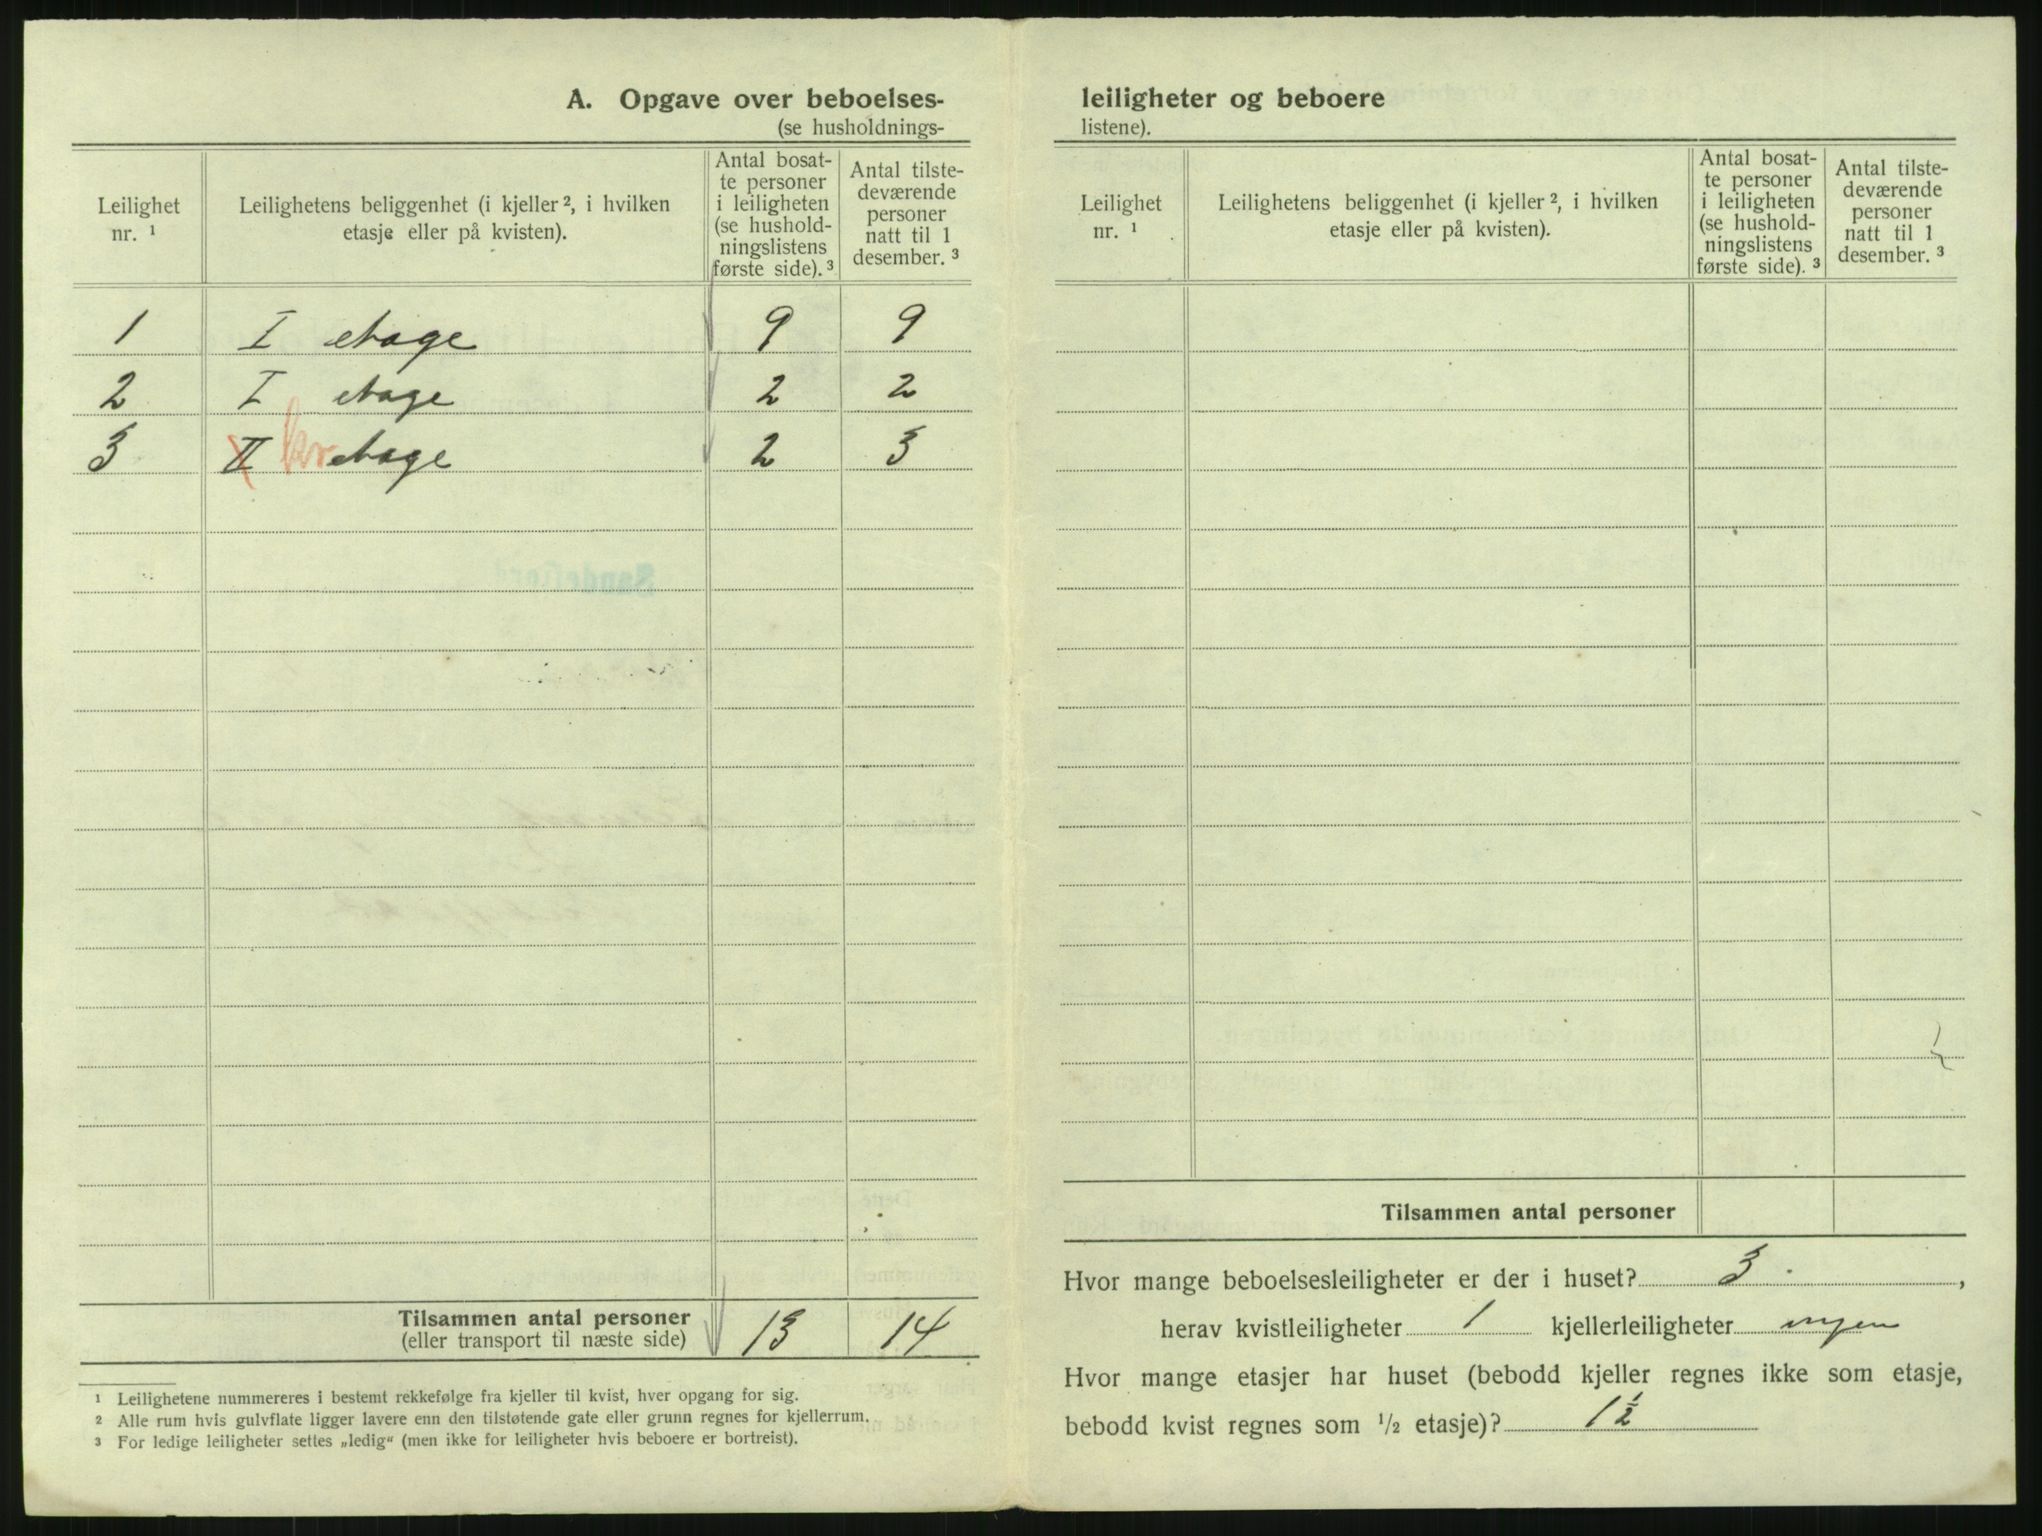 A. Opgave over beboelses-
(se husholdnings-
Leilighet nr. ¹
Leilighetens beliggenhet (i kjeller ², i hvilken
etasje eller på kvisten).
Antal bosat-
te personer
i leiligheten
(se hushold-
ningslistens
første side). ³
Antal tilste-
deværende
personer
natt til 1
desember. ³
1 I etage 9 9
2 I etage 2 2
3 II kv etage 2 3
Sandefjord
Tilsammen antal personer
(eller transport til næste side) 13 14
¹ Leilighetene nummereres i bestemt rekkefølge fra kjeller til kvist, hver opgang for sig.
² Alle rum hvis gulvflate ligger lavere enn den tilstøtende gate eller grunn regnes for kjellerrum.
³ For ledige leiligheter settes „ledig“ (men ikke for leiligheter hvis beboere er bortreist).
leiligheter og beboere
listene).
Leilighet
nr. ¹
Leilighetens beliggenhet (i kjeller ², i hvilken
etasje eller på kvisten).
Antal bosat-
te personer
i leiligheten
(se hushold-
ningslistens
første side). ³
Antal tilste-
deværende
personer
natt til 1
desember. ³
Tilsammen antal personer
Hvor mange beboelsesleiligheter er der i huset? 3.,
herav kvistleiligheter 1 kjellerleiligheter ingen
Hvor mange etasjer har huset (bebodd kjeller regnes ikke som etasje,
bebodd kvist regnes som ½ etasje)? 1½